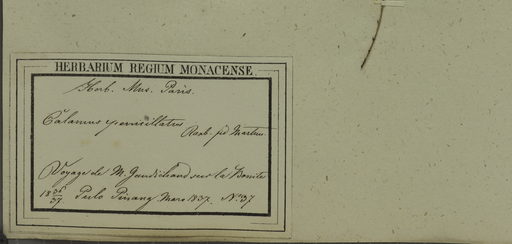 HERBARIUM REGIUM MONACENSE.
Herb. Mus. Paris.
Calamus penicillatus
Roxb. fid Martius
Voyage de M. Gaudichaud sur la Bonite
18 36/37 Pulo Pinang Mars 1837. No. 37